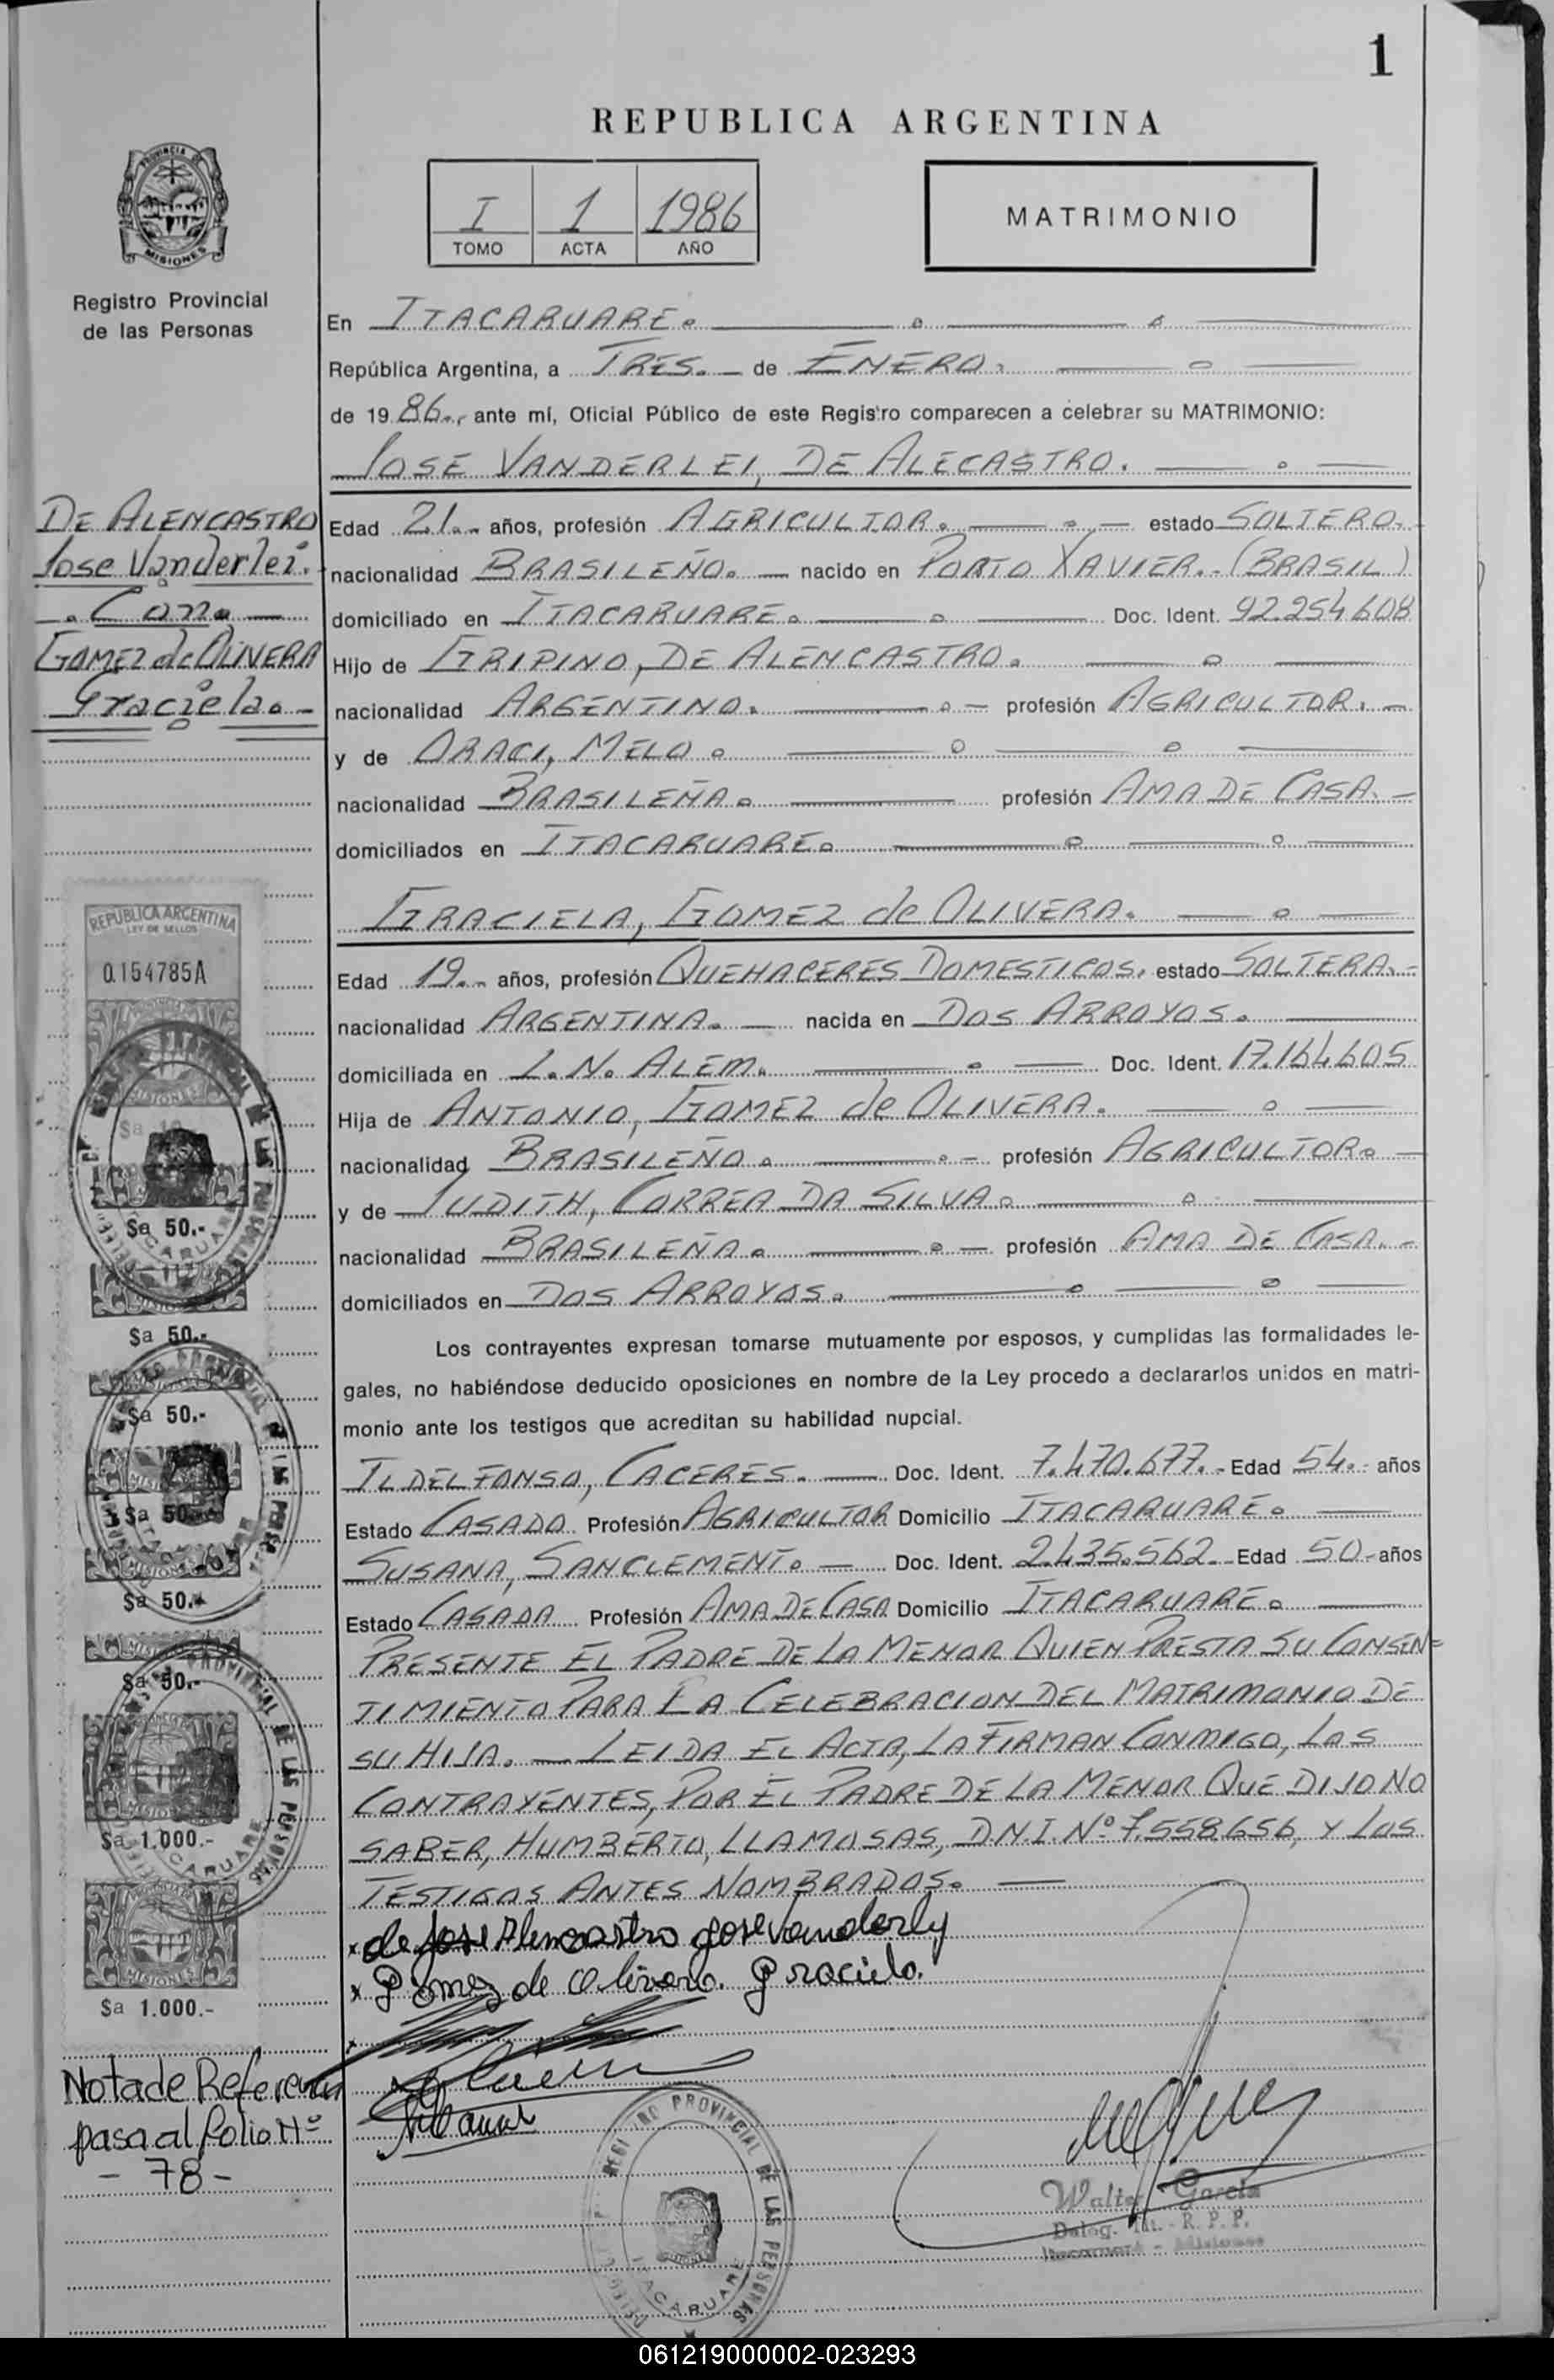 1
REPUBLICA ARGENTINA
PROVINCIA DE
MISIONES
Registro Provincial
de las Personas
I 1 1986
TOMO ACTA AÑO
MATRIMONIO
En ITACARUARE.
República Argentina, a TRES. - de ENERO.
de 1986., ante mí, Oficial Público de este Registro comparecen a celebrar su MATRIMONIO:
JOSE VANDERLEI, DE ALECASTRO.
DE ALENCASTRO
Jose Vanderlei.
. Con. —
GOMEZ de OLIVERA
Graciela. -
Edad 21.- años, profesión AGRICULTOR. — estado SOLTERO.
nacionalidad BRASILEÑO. — nacido en PORTO XAVIER.- (BRASIL)
domiciliado en ITACARUARE. Doc. Ident. 92.254.608
Hijo de GRIPINO, DE ALENCASTRO.
nacionalidad ARGENTINO. — profesión AGRICULTOR. -
y de ORACI, MELO.
nacionalidad BRASILEÑA. — profesión AMA DE CASA. -
domiciliados en ITACARUARE.
GRACIELA, GOMEZ de OLIVERA.
Edad 19.- años, profesión QUEHACERES DOMESTICOS. estado SOLTERA. -
nacionalidad ARGENTINA. — nacida en DOS ARROYOS.
domiciliada en L. N. ALEM. Doc. Ident. 17.164.605
Hija de ANTONIO, GOMEZ de OLIVERA.
nacionalidad BRASILEÑO. — profesión AGRICULTOR. —
y de JUDITH, CORREA DA SILVA.
nacionalidad BRASILEÑA. — profesión AMA DE CASA. -
domiciliados en DOS ARROYOS.
Los contrayentes expresan tomarse mutuamente por esposos, y cumplidas las formalidades le-
gales, no habiéndose deducido oposiciones en nombre de la Ley procedo a declararlos unidos en matri-
monio ante los testigos que acreditan su habilidad nupcial.
ILDELFONSO, CACERES. — Doc. Ident. 7.470.677. - Edad 54.- años
Estado CASADO. Profesión AGRICULTOR Domicilio ITACARUARE.
SUSANA, SANCLEMENT. — Doc. Ident. 2.435.562. - Edad 50 - años
Estado CASADA Profesión AMA DE CASA Domicilio ITACARUARE.
PRESENTE EL PADRE DE LA MENOR QUIEN PRESTA SU CONSEN=
TIMIENTO PARA LA CELEBRACION DEL MATRIMONIO DE
SU HIJA. — LEIDA EL ACTA, LA FIRMAN CONMIGO, LOS
CONTRAYENTES, POR EL PADRE DE LA MENOR QUE DIJO NO
SABER, HUMBERTO, LLAMOSAS, D.N.I. Nº 7.558.656, Y LOS
TESTIGOS ANTES NOMBRADOS. —
x de Jose Alencastro jose Vanderly
x Gomez de Olivera. Graciela.
REPUBLICA ARGENTINA
LEY DE SELLOS
0.154785A
MISIONES
$a 50.-
$a 50.-
$a 50.-
$a 50.-
$a 50.-
$a 50.-
$a 1.000.-
MISIONES
$a 1.000.-
Nota de Referencia
pasa al folio Nº
- 78 -
REGISTRO PROVINCIAL DE LAS PERSONAS
ITACARUARE
Walter García
Deleg. Tit. - R. P. P.
Itacaruaré - Misiones
061219000002-023293